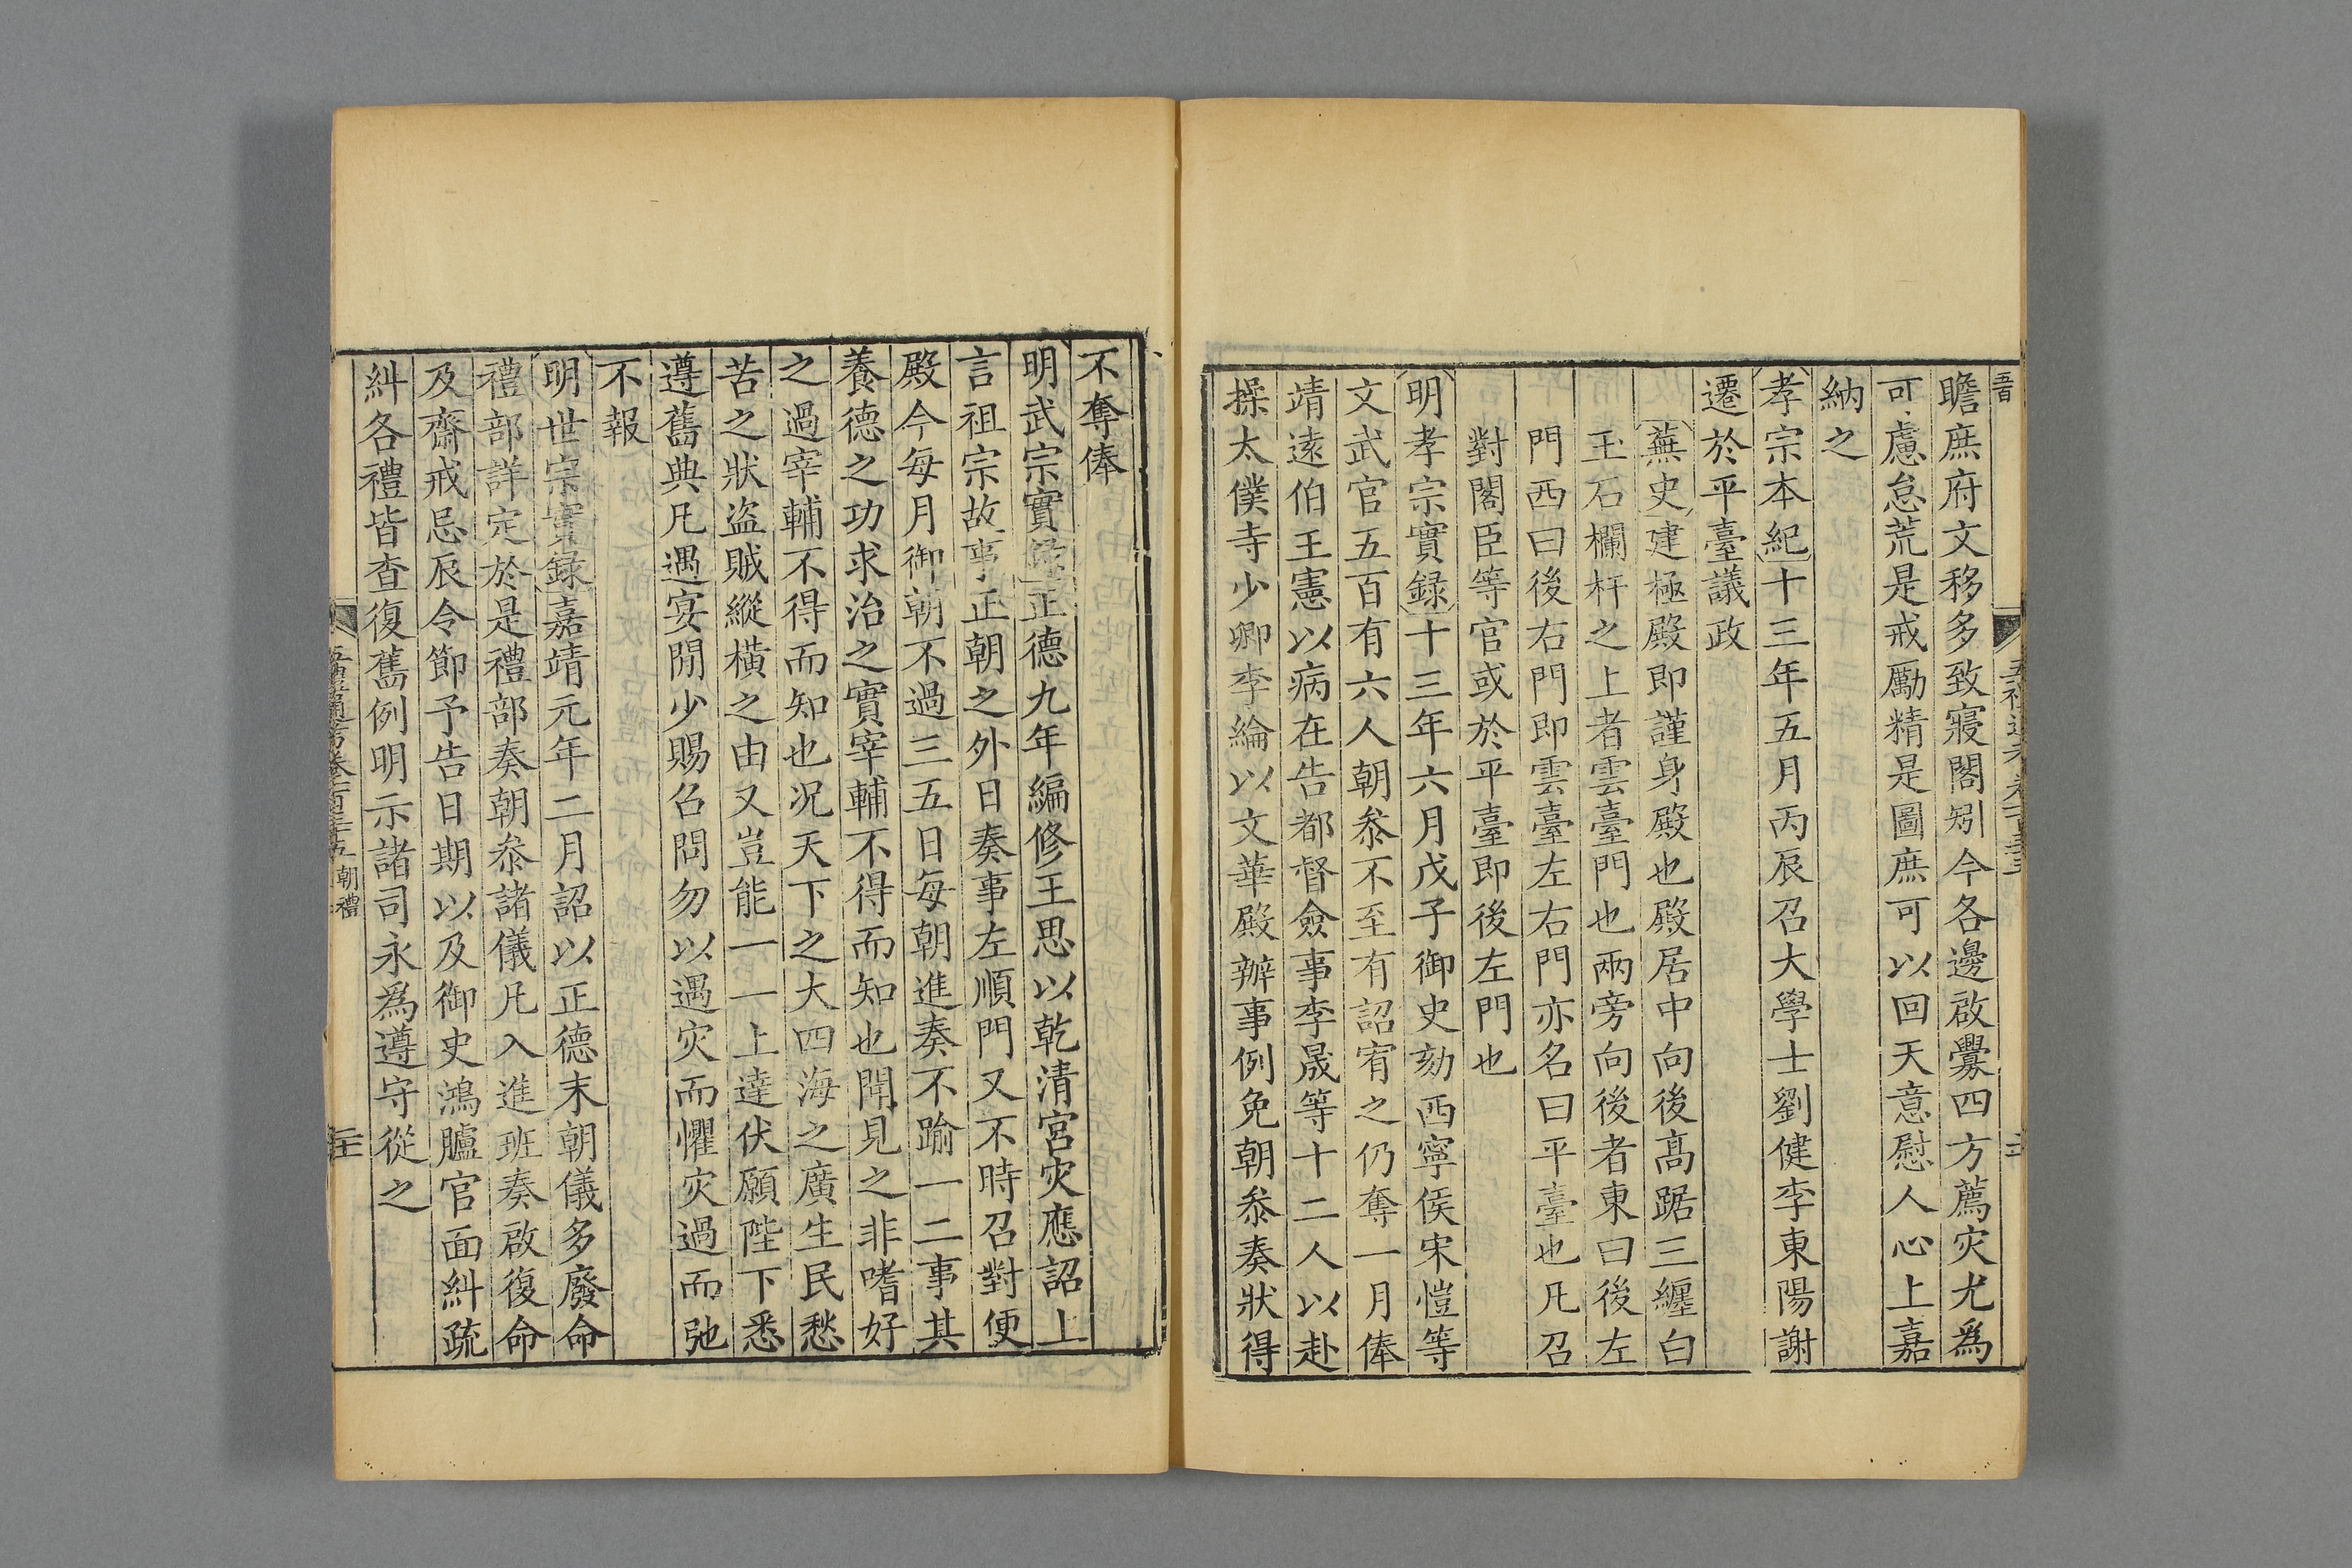 瞻庶府文移多致寢閣矧今各邊啟釁四方薦灾尤爲
可慮怠荒是戒勵精是圖庶可以回天意慰人心上嘉
納之
孝宗本紀十三年五月丙辰召大學士劉健李東陽謝
遷於平臺議政
蕪史建極殿即謹身殿也殿居中向後髙踞三纏白
玉石欄杆之上者雲臺門也兩旁向後者東曰後左
門西曰後右門即雲臺左右門亦名曰平臺也凡召
對閣臣等官或於平臺即後左門也
明孝宗實録十三年六月戊子御史劾西寧侯宋愷等
文武官五百有六人朝叅不至有詔宥之仍奪一月俸
靖遠伯王憲以病在告都督僉事李晟等十二人以赴
操太僕寺少卿李綸以文華殿辦事例免朝叅奏狀得
不奪俸
明武宗實錄正德九年編修王思以乾清宮灾應詔上
言祖宗故事正朝之外日奏事左順門又不時召對便
殿今每月御朝不過三五日每朝進奏不踰一二事其
養德之功求治之實宰輔不得而知也聞見之非嗜好
之過宰輔不得而知也况天下之大四海之廣生民愁
苦之狀盗賊縱橫之由又豈能一一上達伏願陛下悉
遵舊典凡遇宴閒少賜召問勿以遇灾而懼灾過而弛
不報
明世宗實録嘉靖元年二月詔以正德末朝儀多廢命
禮部詳定於是禮部奏朝叅諸儀凡入進班奏啟復命
及齋戒忌辰令節予告日期以及御史鴻臚官面糾疏
糾各禮皆查復舊例明示諸司永爲遵守從之
五禮通考卷一百三十五 朝禮